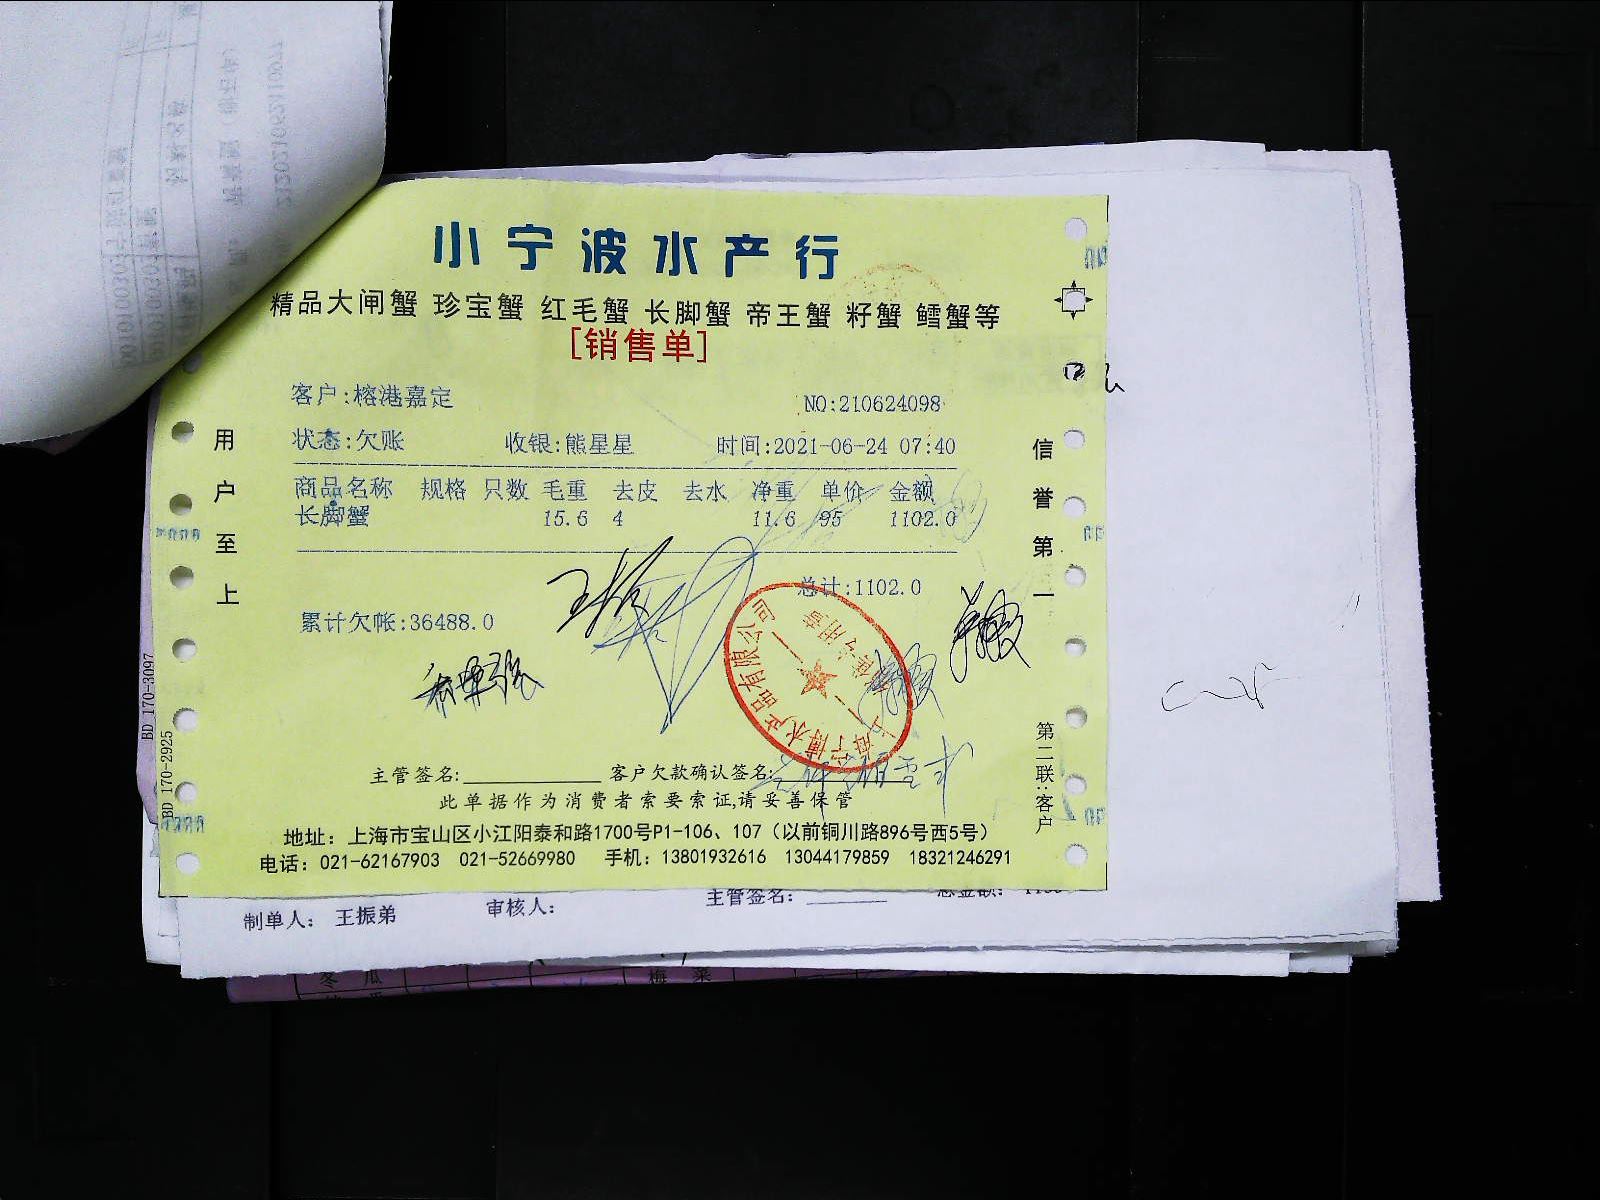 小宁波水产行
精品大闸蟹 珍宝蟹 红毛蟹 长脚蟹 帝王蟹 籽蟹 鳕蟹等
[销售单]
客户:榕港嘉定 NO:210624098
状态:欠账 收银:熊星星 时间:2021-06-24 07:40
商品名称 规格 只数 毛重 去皮 去水 净重 单价 金额
长脚蟹 15.6 4 11.6 95 1102.0
总计:1102.0
累计欠帐:36488.0
用户至上
信誉第一
第二联:客户
主管签名: 客户欠款确认签名:
此单据作为消费者索要索证,请妥善保管
地址：上海市宝山区小江阳泰和路1700号P1-106、107（以前铜川路896号西5号）
电话：021-62167903 021-52669980 手机：13801932616 13044179859 18321246291
BD 170-3097
BD 170-2925
制单人： 王振弟 审核人： 主管签名：
冬 瓜 梅 菜